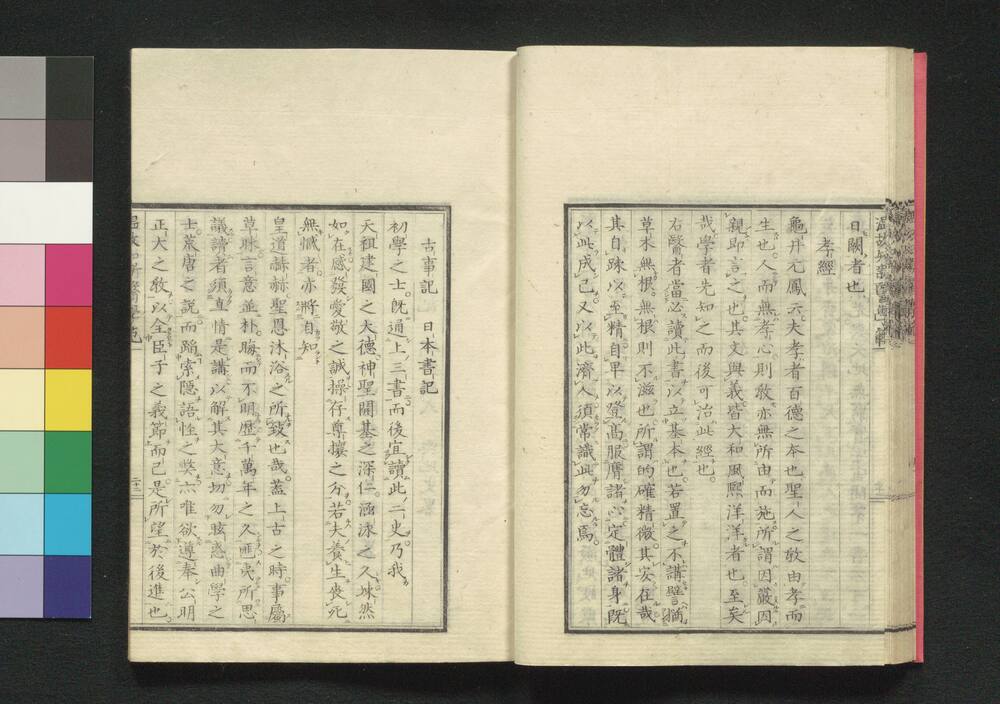 日闕者也
孝經
龜井元鳳云夫孝者百德之本也聖人之敎由孝而
生也人而無孝心則敎亦無所由而施所謂因嚴因
親即言之也其文與義皆大和風熙洋洋者也至矣
哉學者先知之而後可治此經也
右醫者當必讀此書以立基本也若置之不講譬猶
草木無根無根則不滋也所謂的確精微其安在哉
其自踈以至精自卑以登髙服膺諸心定體諸身既
以此成己又以此濟人須常識此勿忘焉
古事記　日本書記
初學之士既通上三書而後宜讀此二史乃我
天祖建國之大德神聖開基之深仁涵泳之久竦然
如在感發愛敬之誠操存尊攘之分若夫養生喪死
無憾者亦將自知
皇道赫赫聖恩沐浴之所致也哉蓋上古之時事屬
草昧言意並朴晦而不明歷千萬年之久匪夷所思
議讀者須直情是講以解其大意切勿眩惑曲學之
士荒唐之説而蹈索隱語怪之獘亦唯欲遵奉公明
正大之敎以全臣子之義節而已是所望於後進也